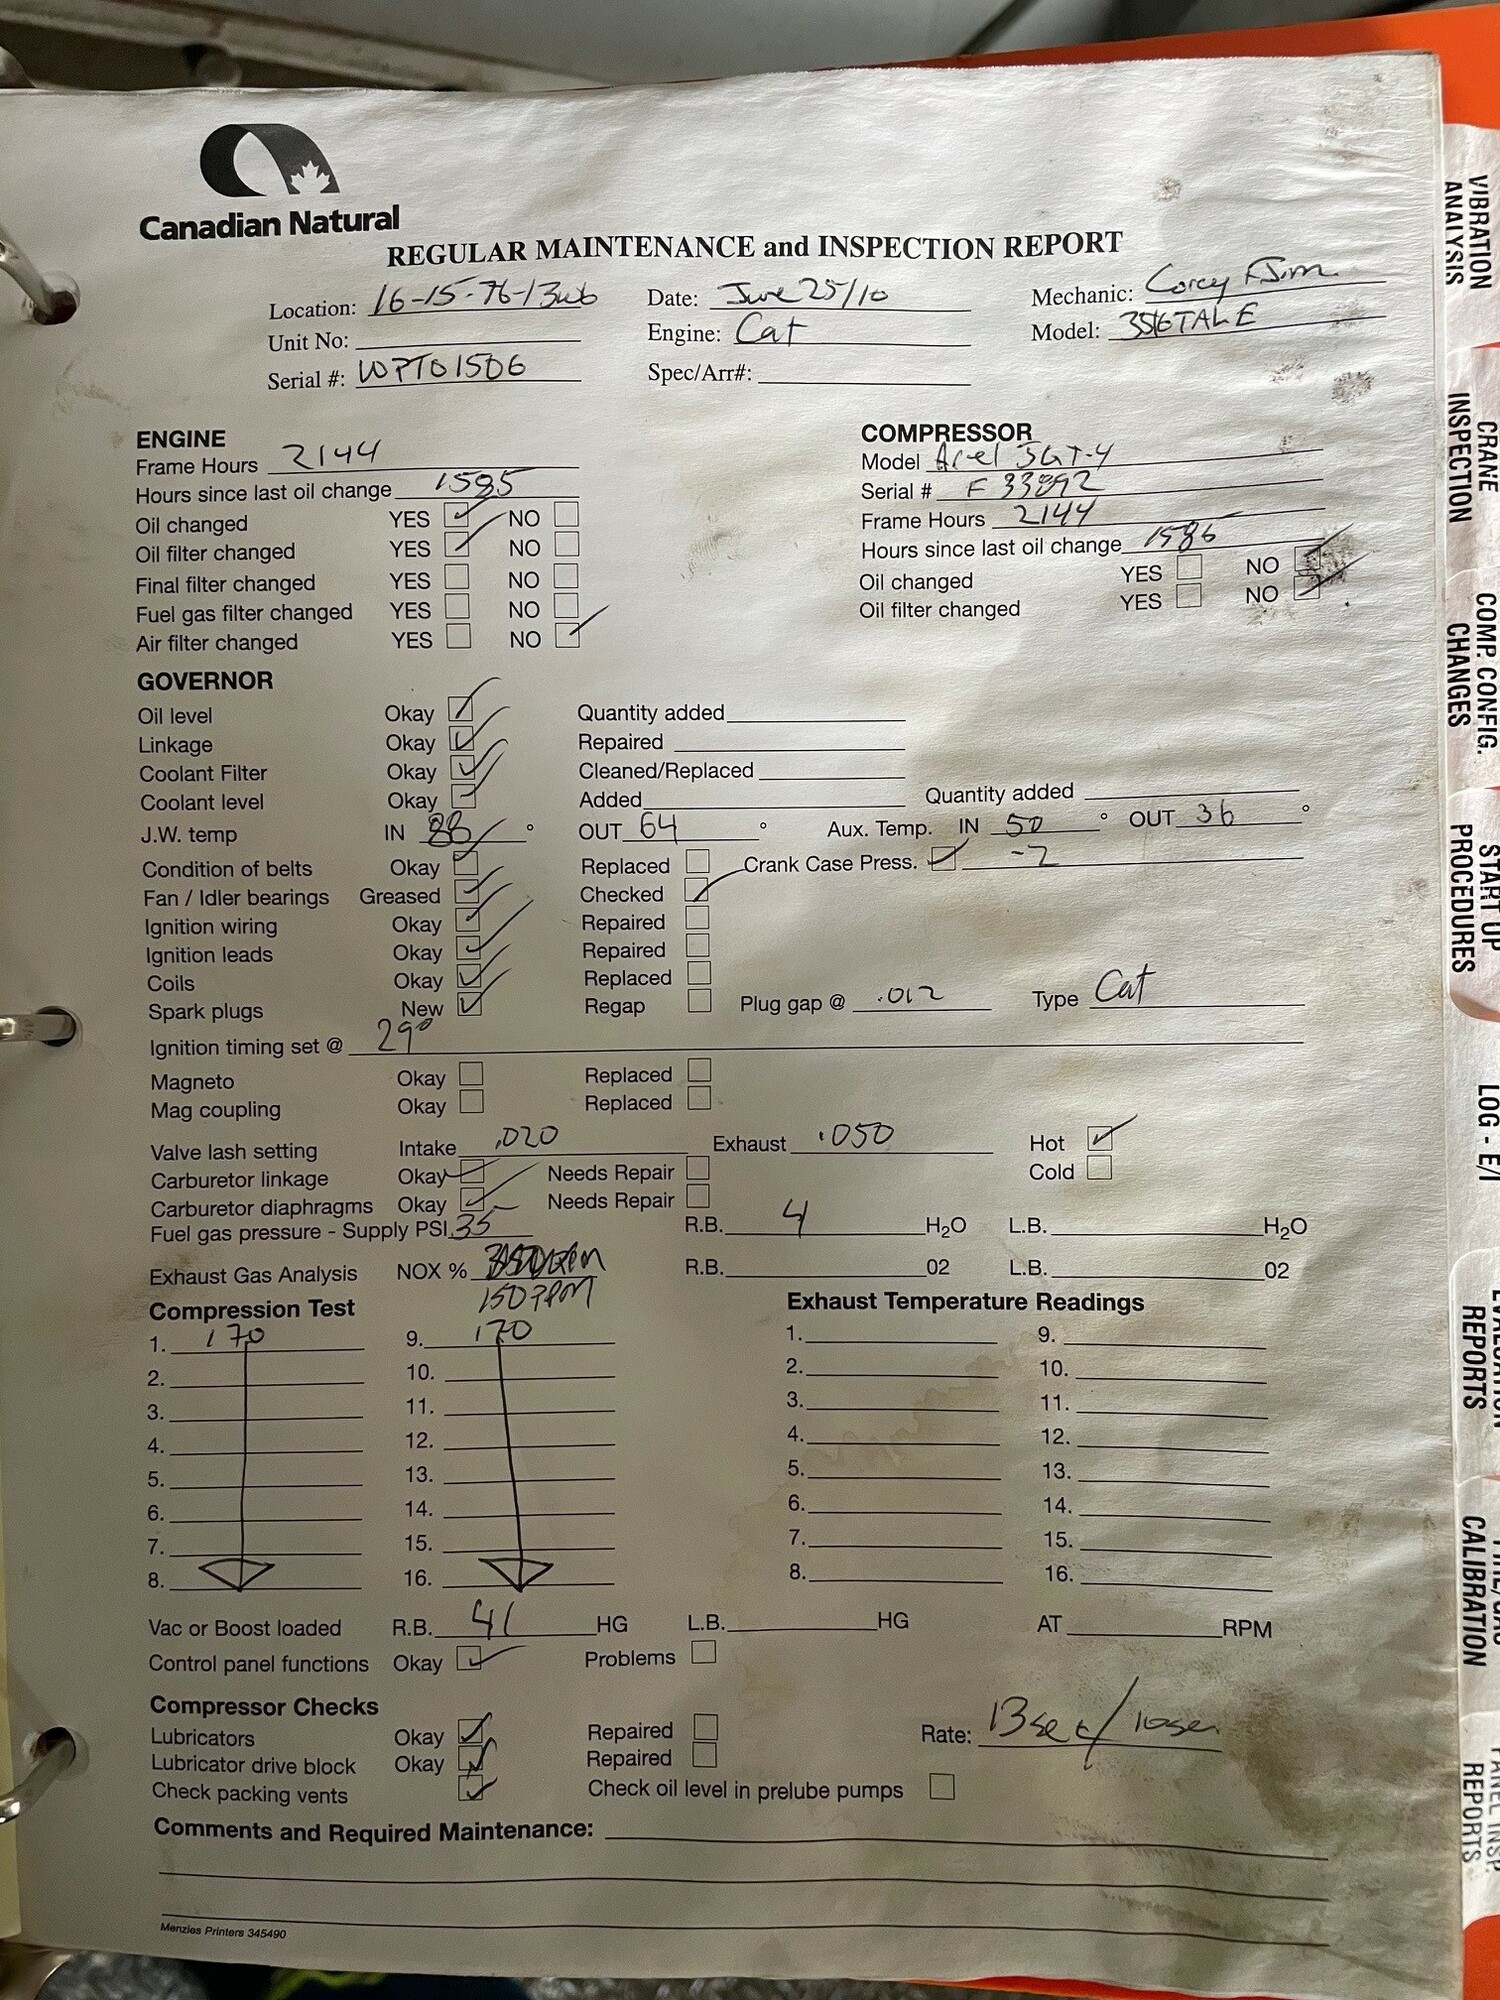 Canadian Natural
REGULAR MAINTENANCE and INSPECTION REPORT
Location: 16-15-76-13w6 Date: June 25/10 Mechanic: Corey & Jim
Unit No: Engine: Cat Model: 3516TALE
Serial #: WPT01506 Spec/Arr#:
ENGINE
Frame Hours 2144
Hours since last oil change 1585
Oil changed YES NO
Oil filter changed YES NO
Final filter changed YES NO
Fuel gas filter changed YES NO
Air filter changed YES NO
COMPRESSOR
Model Ariel JGT-4
Serial # F 33892
Frame Hours 2144
Hours since last oil change 1586
Oil changed YES NO
Oil filter changed YES NO
GOVERNOR
Oil level Okay Quantity added
Linkage Okay Repaired
Coolant Filter Okay Cleaned/Replaced
Coolant level Okay Added Quantity added
J.W. temp IN 88 ° OUT 64 ° Aux. Temp. IN 50 ° OUT 36 °
Condition of belts Okay Replaced Crank Case Press. -2
Fan / Idler bearings Greased Checked
Ignition wiring Okay Repaired
Ignition leads Okay Repaired
Coils Okay Replaced
Spark plugs New Regap Plug gap @ .012 Type Cat
Ignition timing set @ 29°
Magneto Okay Replaced
Mag coupling Okay Replaced
Valve lash setting Intake .020 Exhaust .050 Hot
Cold
Carburetor linkage Okay Needs Repair
Carburetor diaphragms Okay Needs Repair
Fuel gas pressure - Supply PSI 35 R.B. 4 H2O L.B. H2O
Exhaust Gas Analysis NOX % R.B. 02 L.B. 02
150 PPM
Compression Test
1. 170 9. 170
2. 10.
3. 11.
4. 12.
5. 13.
6. 14.
7. 15.
8. 16.
Exhaust Temperature Readings
1. 9.
2. 10.
3. 11.
4. 12.
5. 13.
6. 14.
7. 15.
8. 16.
Vac or Boost loaded R.B. 41 HG L.B. HG AT RPM
Control panel functions Okay Problems
Compressor Checks
Lubricators Okay Repaired Rate: 13 sec / 10sec
Lubricator drive block Okay Repaired
Check packing vents Check oil level in prelube pumps
Comments and Required Maintenance:
Menzies Printers 345490
VIBRATION
ANALYSIS
CRANE
INSPECTION
COMP. CONFIG.
CHANGES
START UP
PROCEDURES
LOG - E/I
REPORTS
CALIBRATION
PANEL INSP.
REPORTS